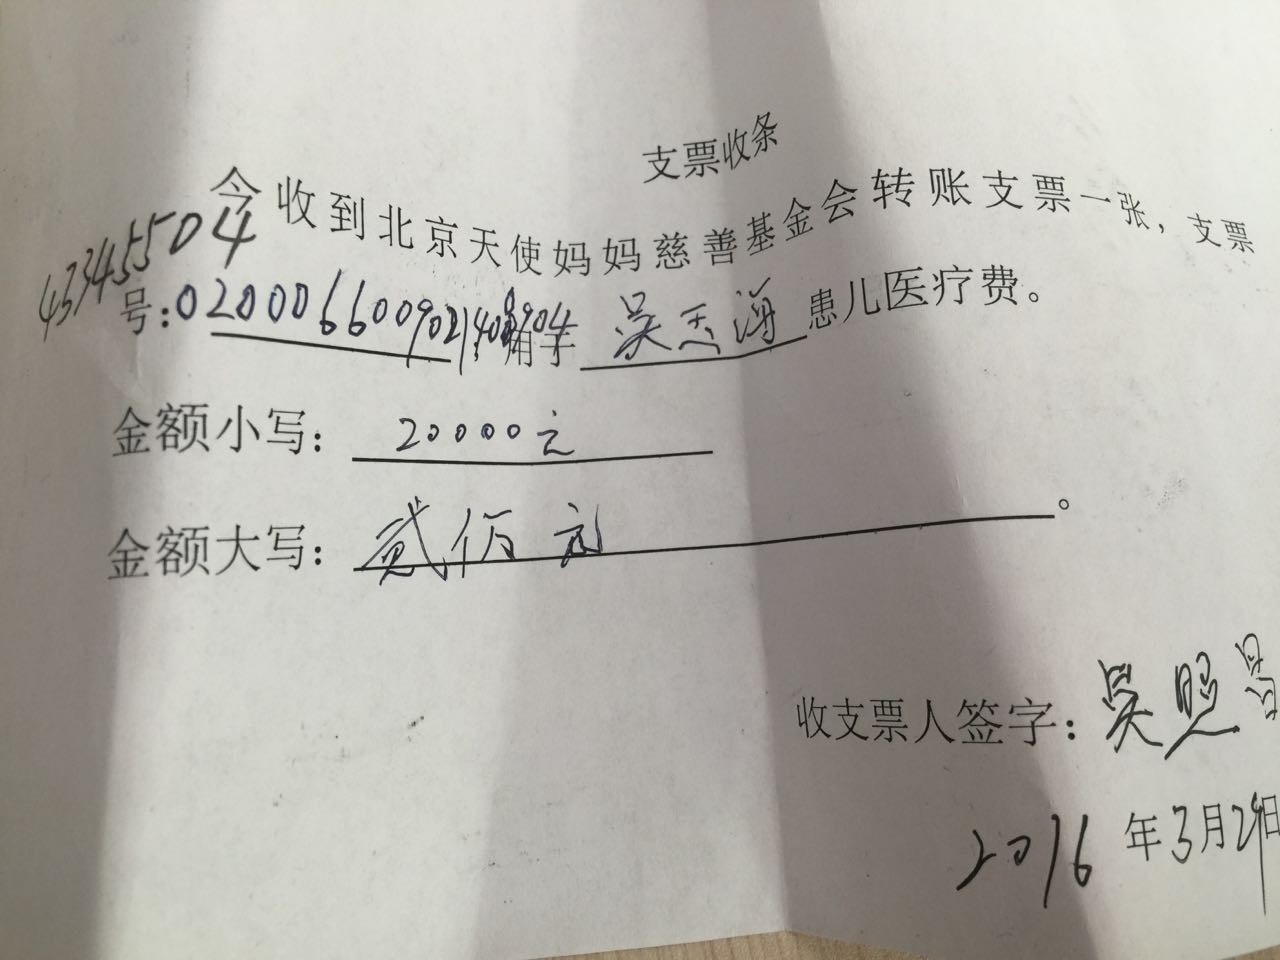 支票收条
今收到北京天使妈妈慈善基金会转账支票一张，支票
43345504
号：0200066009021408904，用于 吴玉海 患儿医疗费。
金额小写： 20000元
金额大写： 贰佰元 。
收支票人签字：吴照
2016年3月29日